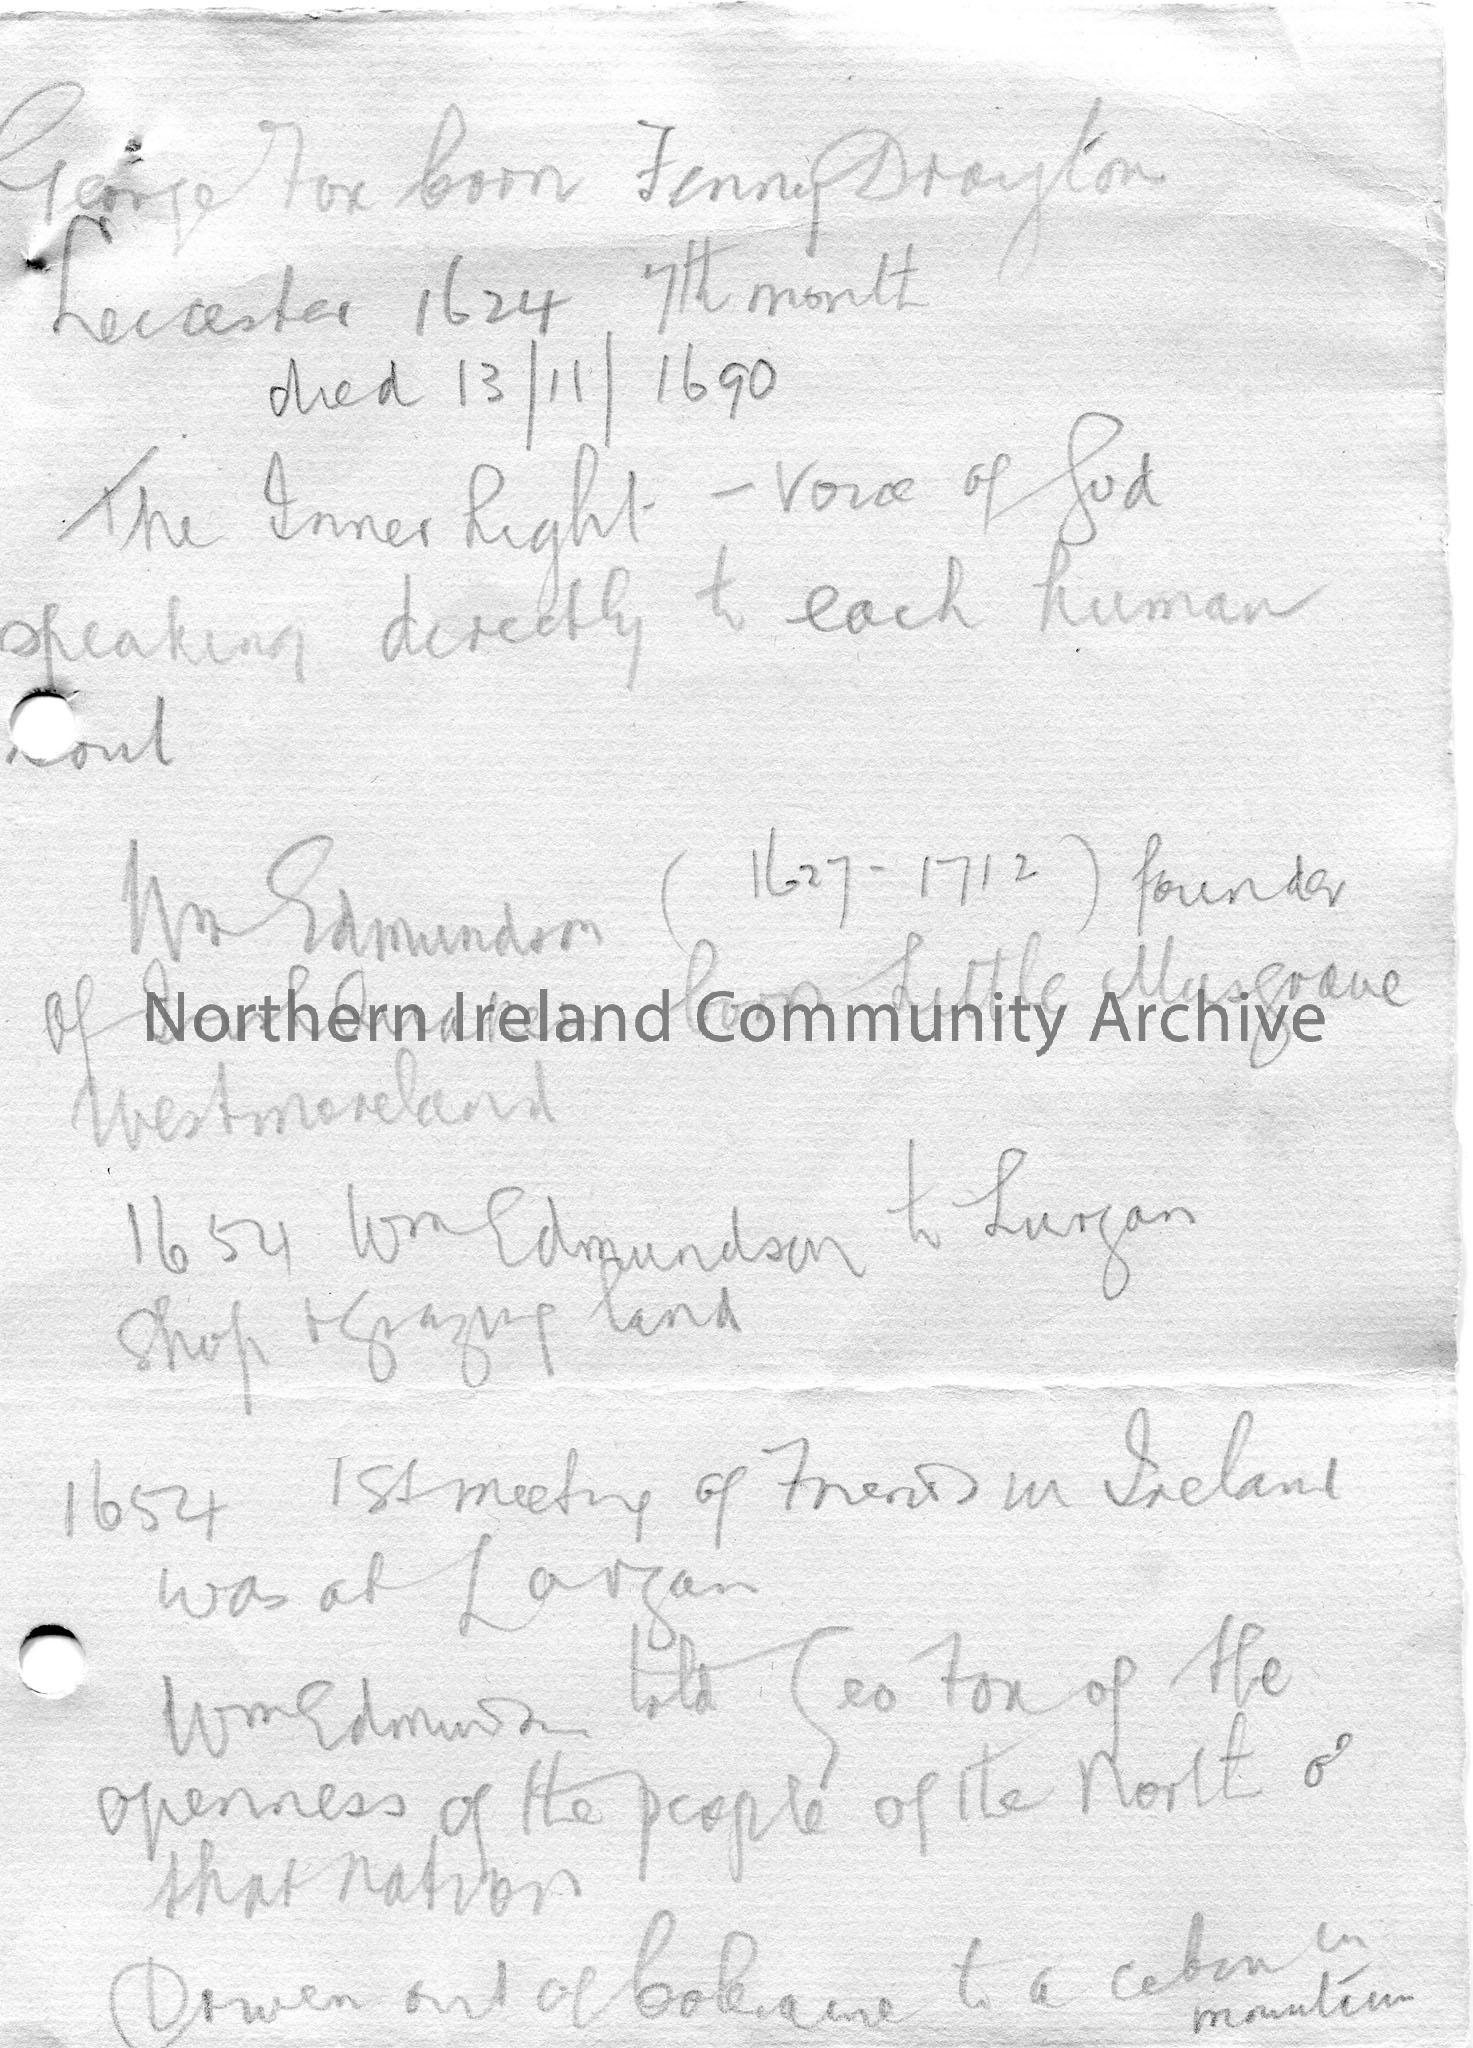 George Fox born Fenny Drayton
Leicester 1624 7th month
died 13/11/1690
The Inner Light - Voice of God
speaking directly to each human
soul
Wm Edmundson (1627-1712) founder
of Irish Quakers born Little Musgrave
Northern Ireland Community Archive
Westmoreland
1654 Wm Edmundson to Lurgan
Shop + grazing land
1654 1st meeting of Friends in Ireland
was at Lurgan
Wm Edmundson told Geo Fox of the
openness of the people of the North of
that nation
Driven out of Coleraine to a cabin in
mountain